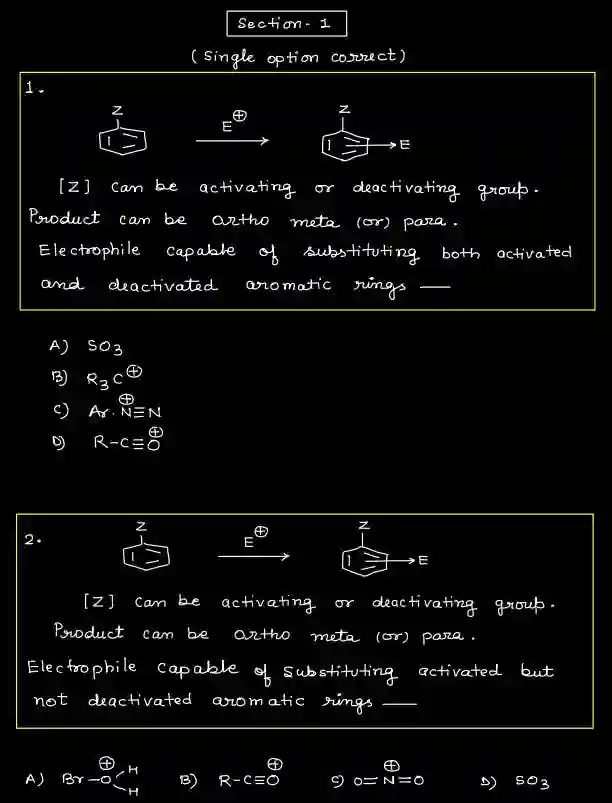 Section-1
(Single option correct)
1.
Z
E⊕
Z
E
[Z] can be activating or deactivating group.
Product can be ortho meta (or) para.
Electrophile capable of substituting both activated
and deactivated aromatic rings —
A) SO3
B) R3C⊕
C) Ar.N⊕≡N
D) R-C≡O⊕
2.
Z
E⊕
Z
E
[Z] can be activating or deactivating group.
Product can be ortho meta (or) para.
Electrophile capable of substituting activated but
not deactivated aromatic rings —
A) Br-O⊕ H H B) R-C≡O⊕ C) O=N⊕=O D) SO3